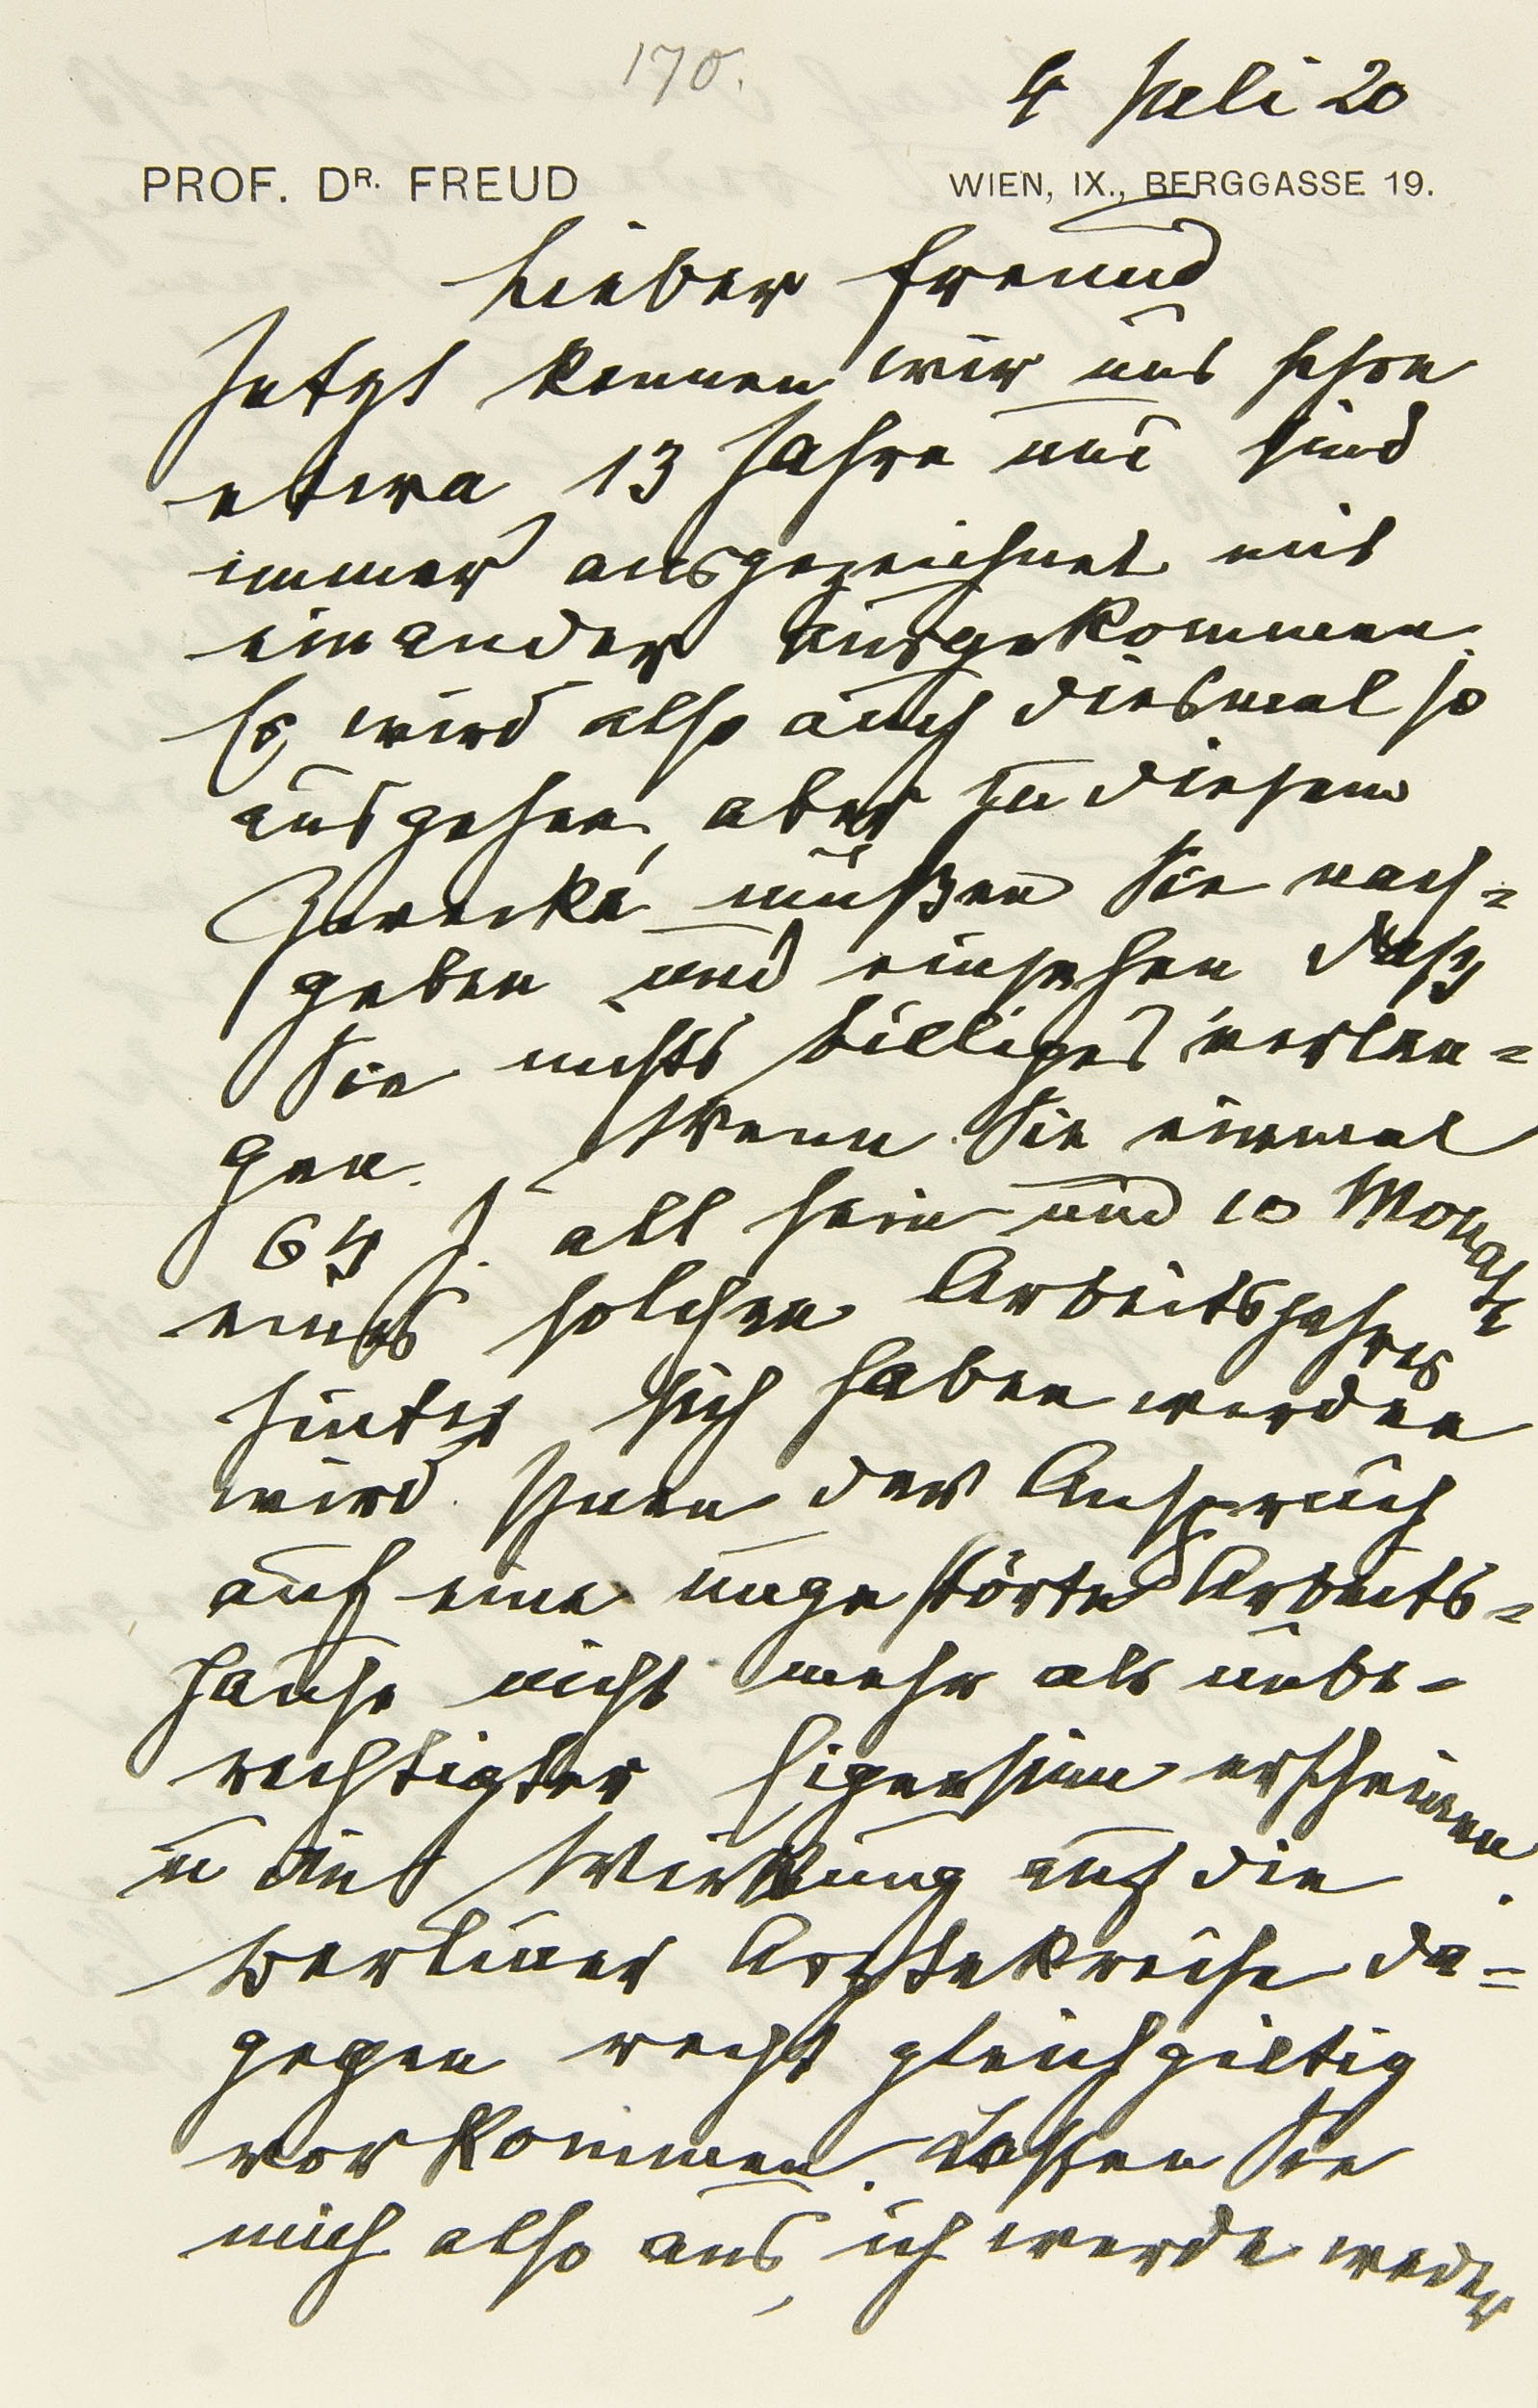 170.
4 Juli 20
PROF. DR. FREUD
WIEN, IX., BERGGASSE 19.
Lieber Freund
Jetzt kennen wir uns schon
etwa 13 Jahre und sind
immer ausgezeichnet mit
einander ausgekommen.
Es wird also auch diesmal so
ausgehen, aber zu diesem
Zwecke müßen Sie nach=
geben und einsehen daß
Sie nichts billiges verlan=
gen. Wenn Sie einmal
64 J. alt sein und 10 Monate
eines solchen Arbeitsjahres
hinter sich haben werden
wird Ihnen der Anspruch
auf eine ungestörte Arbeits=
pause nicht mehr als unbe-
rechtigter Eigensinn erscheinen
u die Wirkung auf die
Berliner Ärztekreise da=
gegen recht gleichgiltig
vorkommen. Laßen Sie
mich also aus, ich werde weder